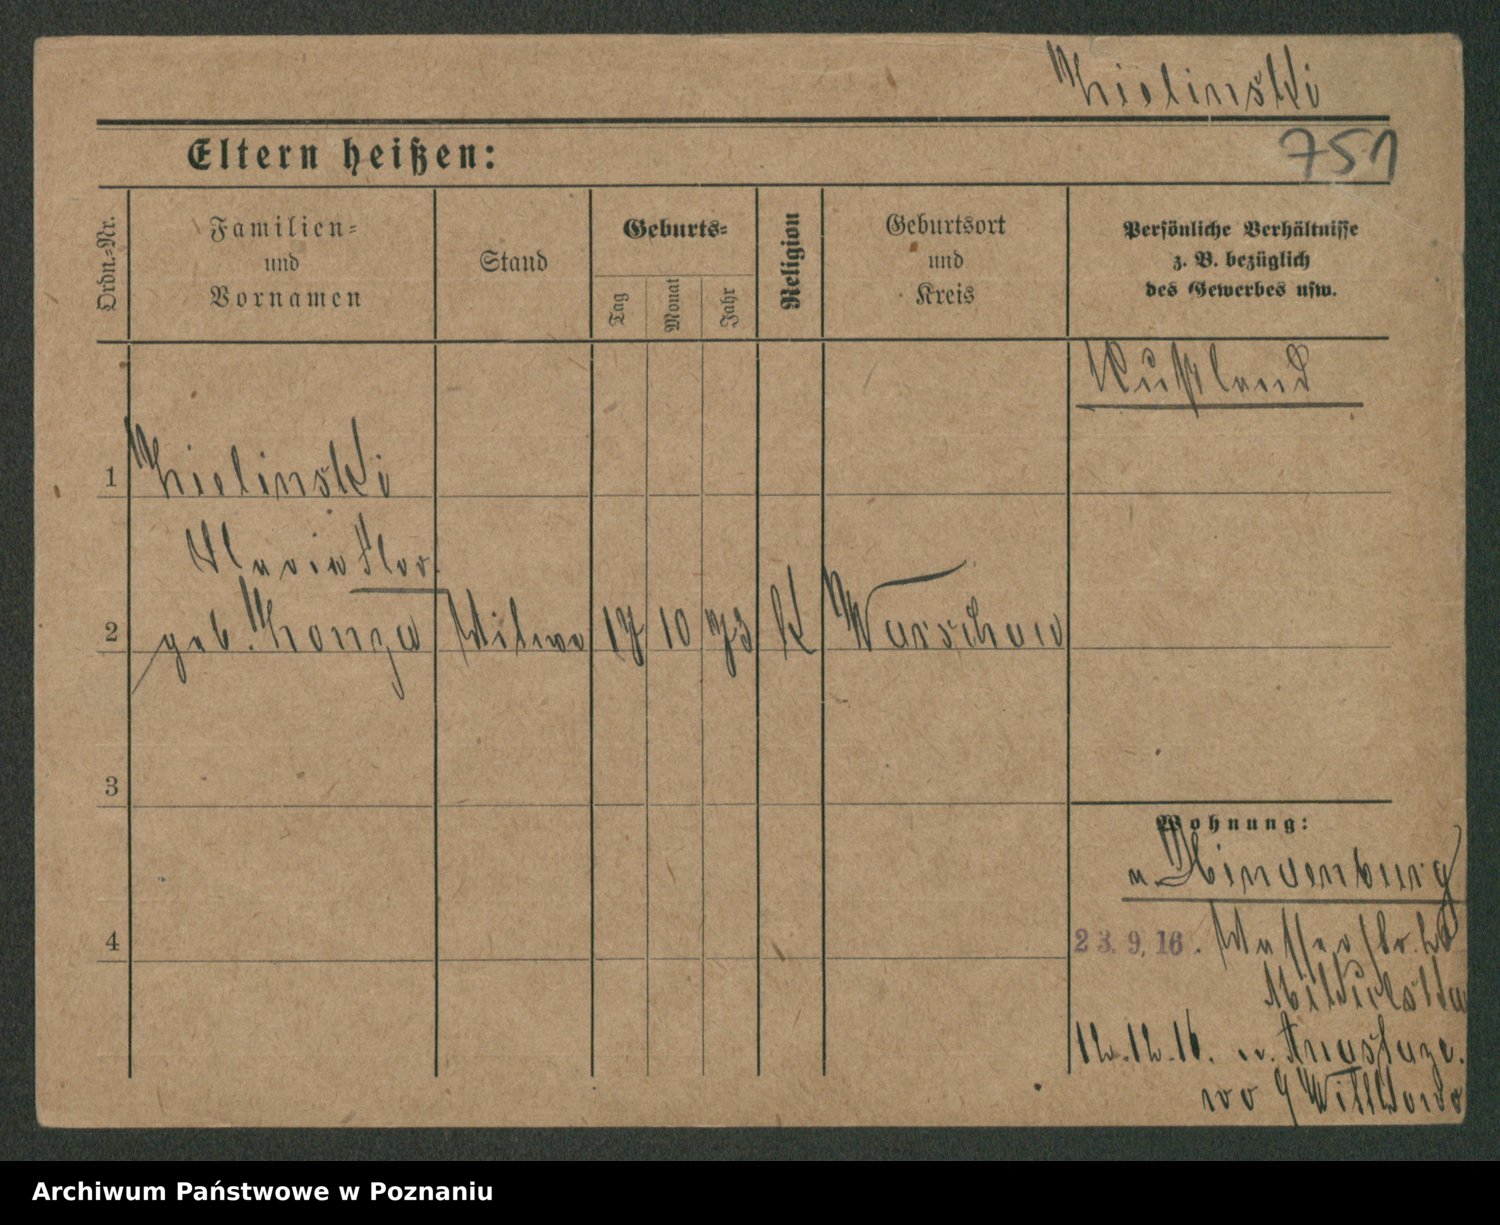 Zielinski
751
Eltern heißen:
Ordn.-Nr.
Familien-
und
Vornamen
Stand
Geburts-
Tag
Monat
Jahr
Religion
Geburtsort
und
Kreis
Persönliche Verhältnisse
z. B. bezüglich
des Gewerbes usw.
Rußland
1
Zielinski
Flor.
2
geb.
Witwe
17
10
73
K
Warschau
3
Wohnung:
n. Hindenburg
4
23. 9. 16.
12.12.16. n.
Archiwum Państwowe w Poznaniu